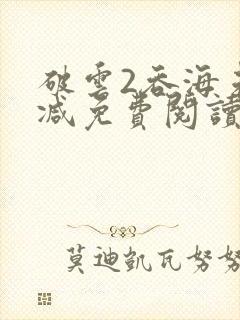 破雲2吞海
減免費閱讀
莫迪凱瓦努努